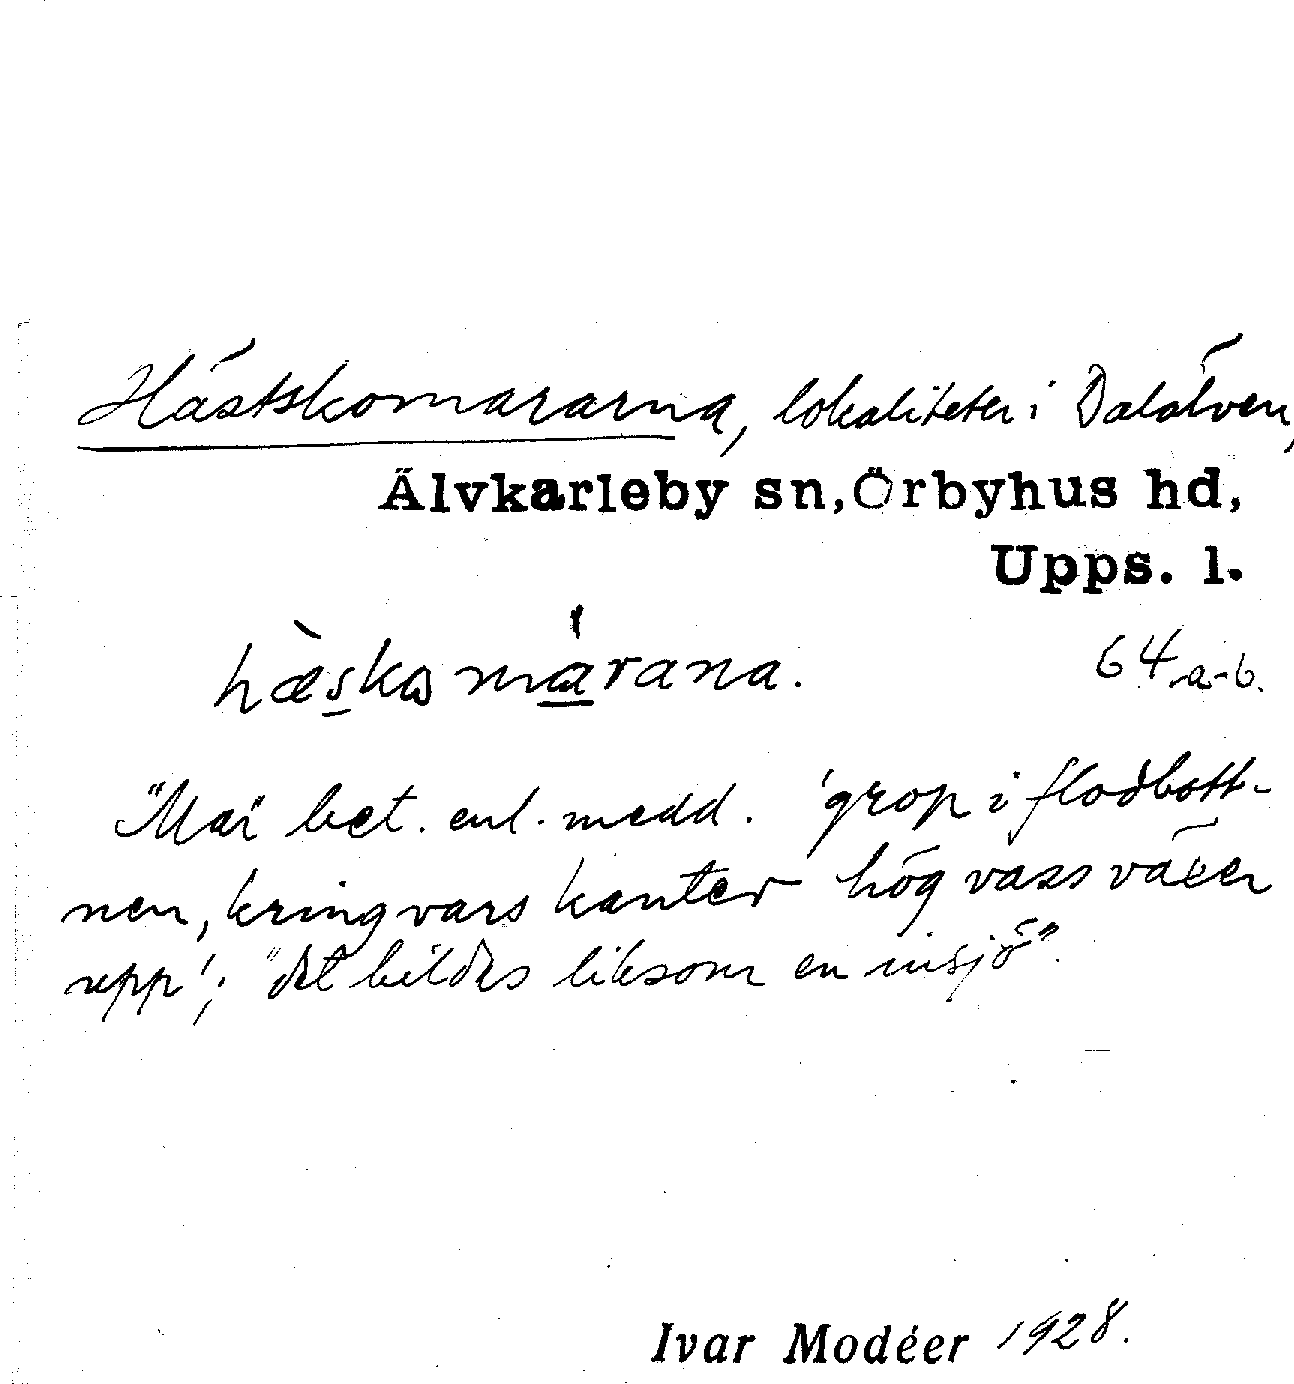 Hästskomararna, lokaliteter i Dalälven,
Älvkarleby sn, Örbyhus hd,
Upps. l.
hæ̀skomárana. 64 a-b.
"Mar" bet. enl. medd. 'grop i flodbott-
nen, kring vars kanter hög vass växer
upp'; "det bildes liksom en insjö".
Ivar Modéer 1928.